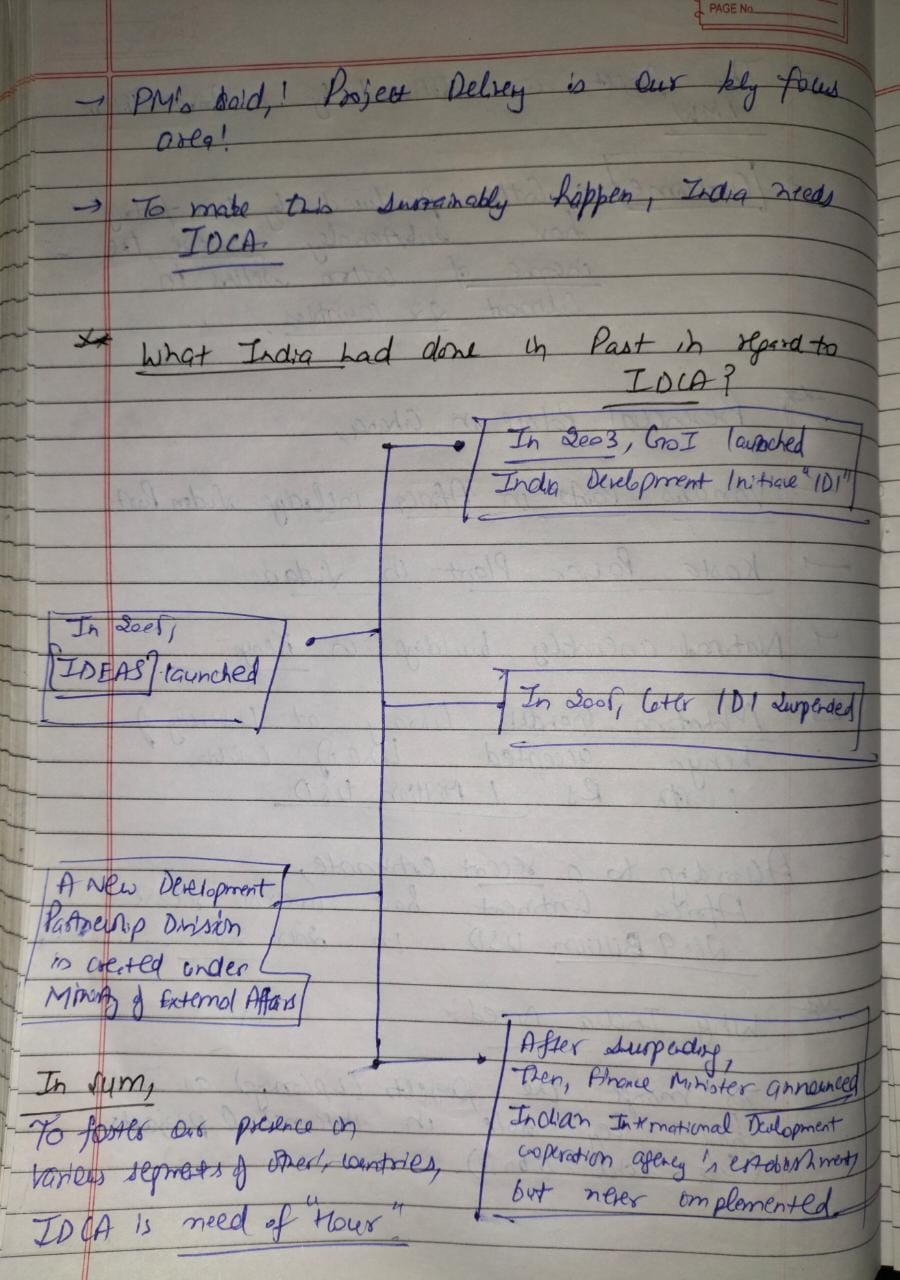 PAGE No.
→ PM's said,! Project Delivey is our key focus
area!
→ To make this sustainably happen, India needs
IDCA.
What India had done in Past in regard to
IDCA?
In 2003, GoI launched
India Development Initiave "IDI"
In 2005,
[IDEAS] launched
In 2005, later IDI suspended
A New Development
Partnership Division
is created under
Ministry of External Affairs
After suspending,
Then, finance Minister announced
Indian International Development
cooperation agency's establishment,
but never implemented.
In sum,
To foster our presence in
various segments of other', countries,
IDCA is need of "Hour"